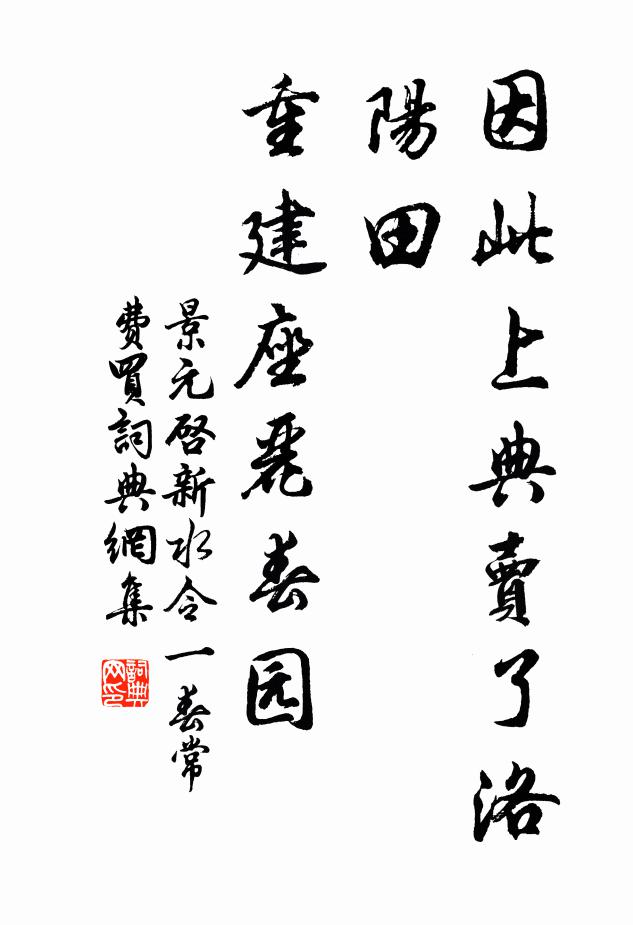 因此上典賣了洛
陽田
重建座麗春园
景元啓新水令一春常
費買詞典網集
詞典网印